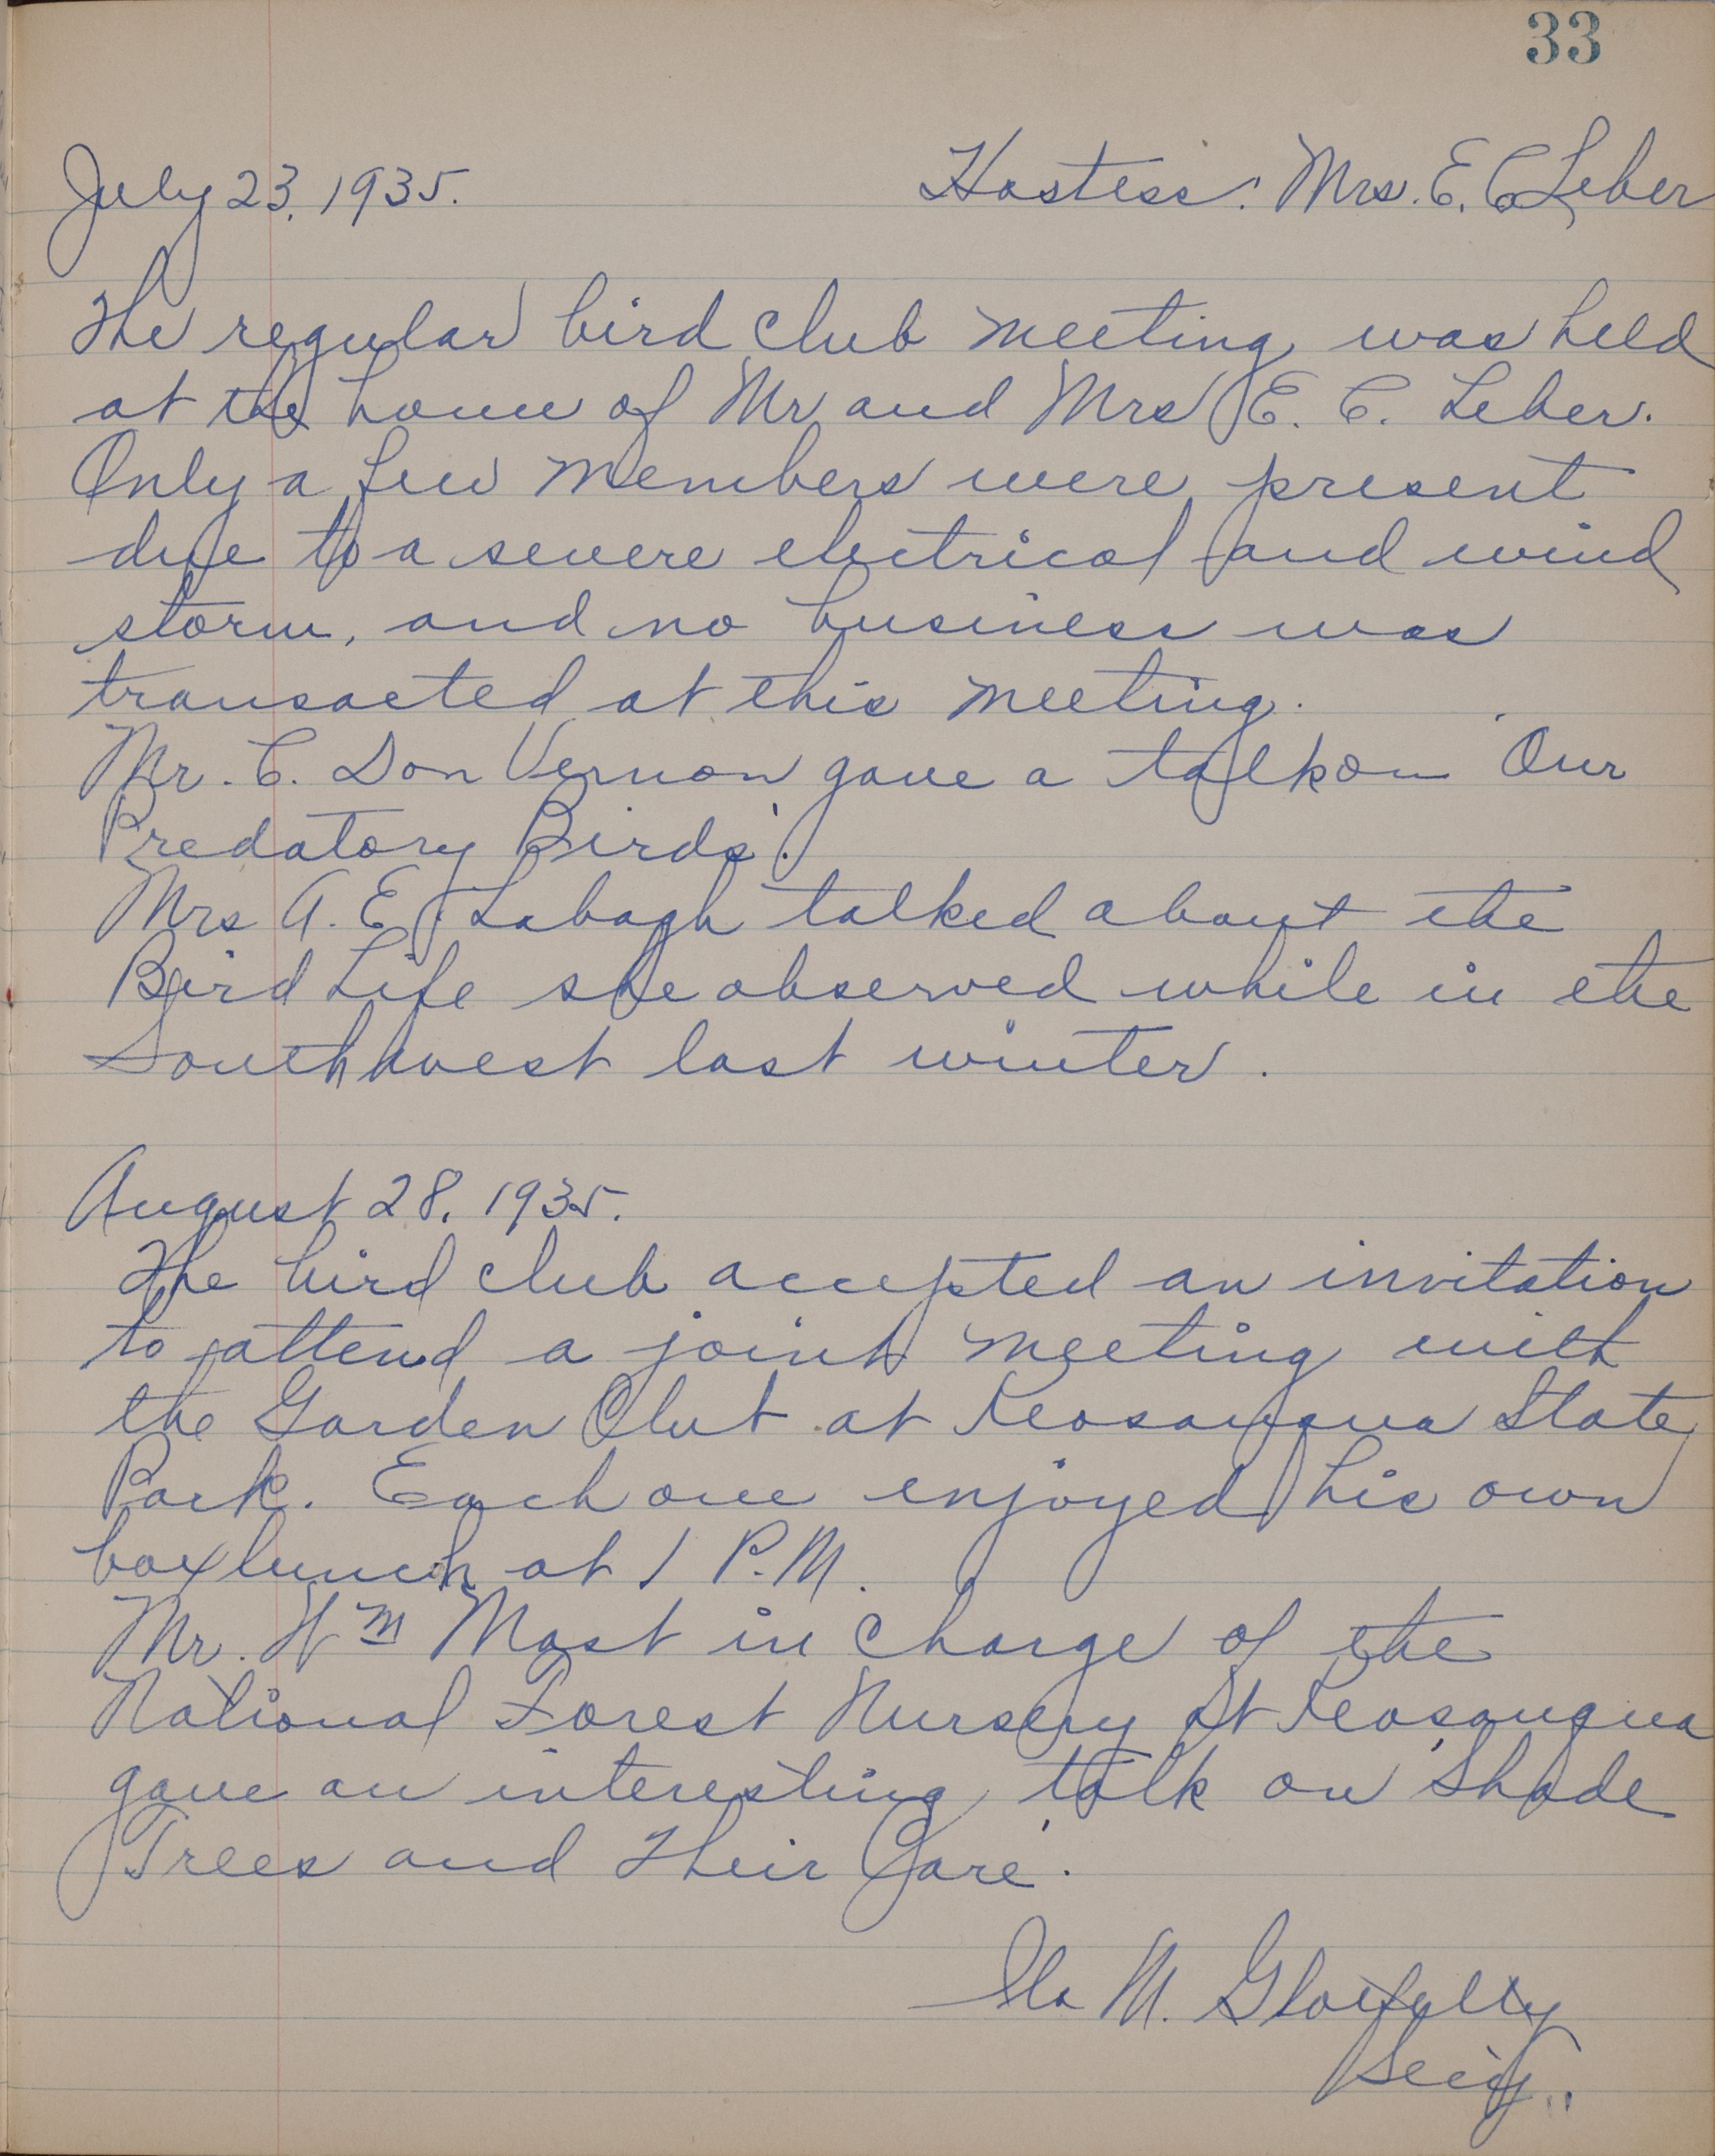 33
July 23, 1935. Hostess: Mrs. E. C. Leber
The regular bird club meeting was held
at the home of Mr and Mrs E. C. Leber.
Only a few members were present
due to a severe electrical and wind
storm, and no business was
transacted at this meeting.
Mr. C. Don Vernon gave a talk on 'Our
Predatory Birds'.
Mrs A. E. Labagh talked about the
Bird Life she observed while in the
Southwest last winter.
August 28, 1935.
The bird club accepted an invitation
to attend a joint meeting with
the Garden Club at Keosauqua State
Park. Each one enjoyed his own
box lunch at 1 P.M.
Mr. Wm Mast in charge of the
National Forest Nursery At Keosauqua
gave an interesting talk on 'Shade
Trees and Their Care'.
M.
Sec'y.